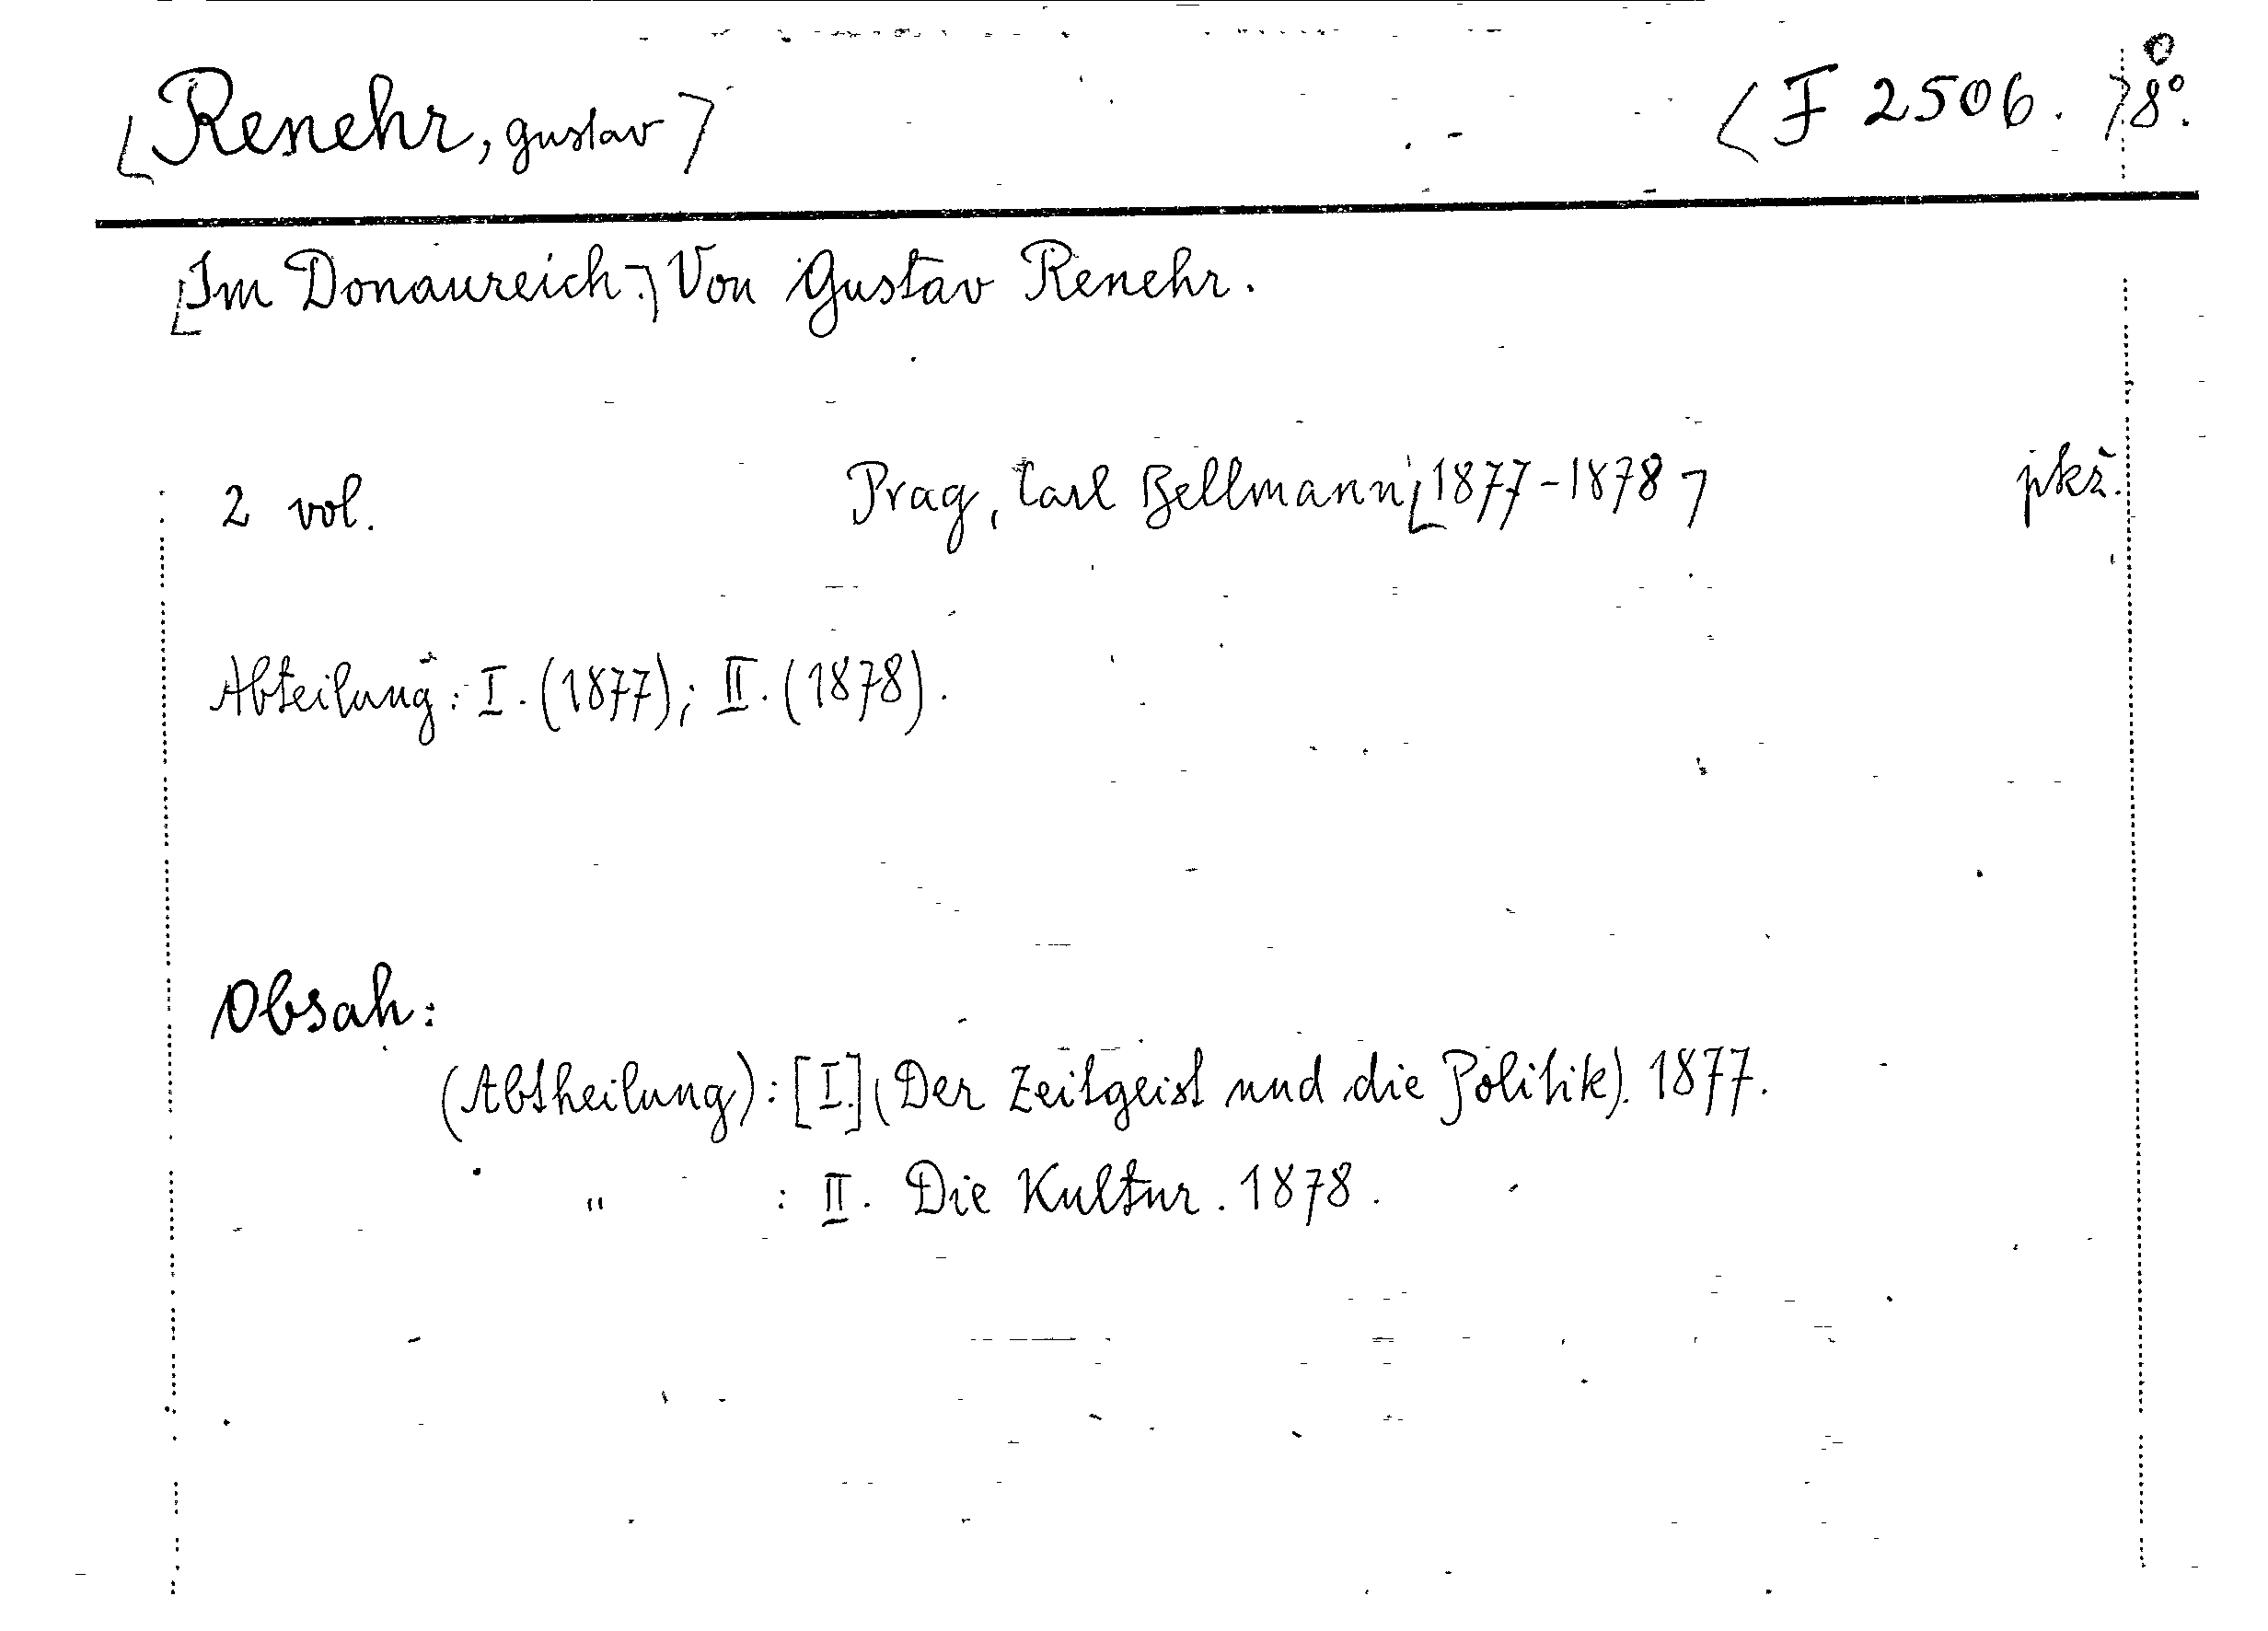 [Renehr, Gustav] <F 2506.> 8°.
[Im Donaureich.] Von Gustav Renehr.
2 vol. Prag, Carl Bellmann [1877-1878] pkž.
Abteilung: I. (1877); II. (1878).
Obsah:
(Abtheilung): [I.] (Der Zeitgeist und die Politik). 1877.
" : II. Die Kultur. 1878.